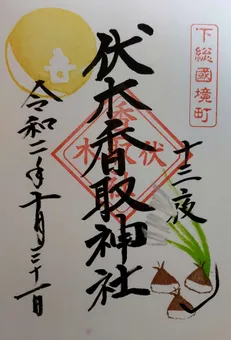 下総國境町
十三夜
伏木香取神社
令和二年十月三十一日